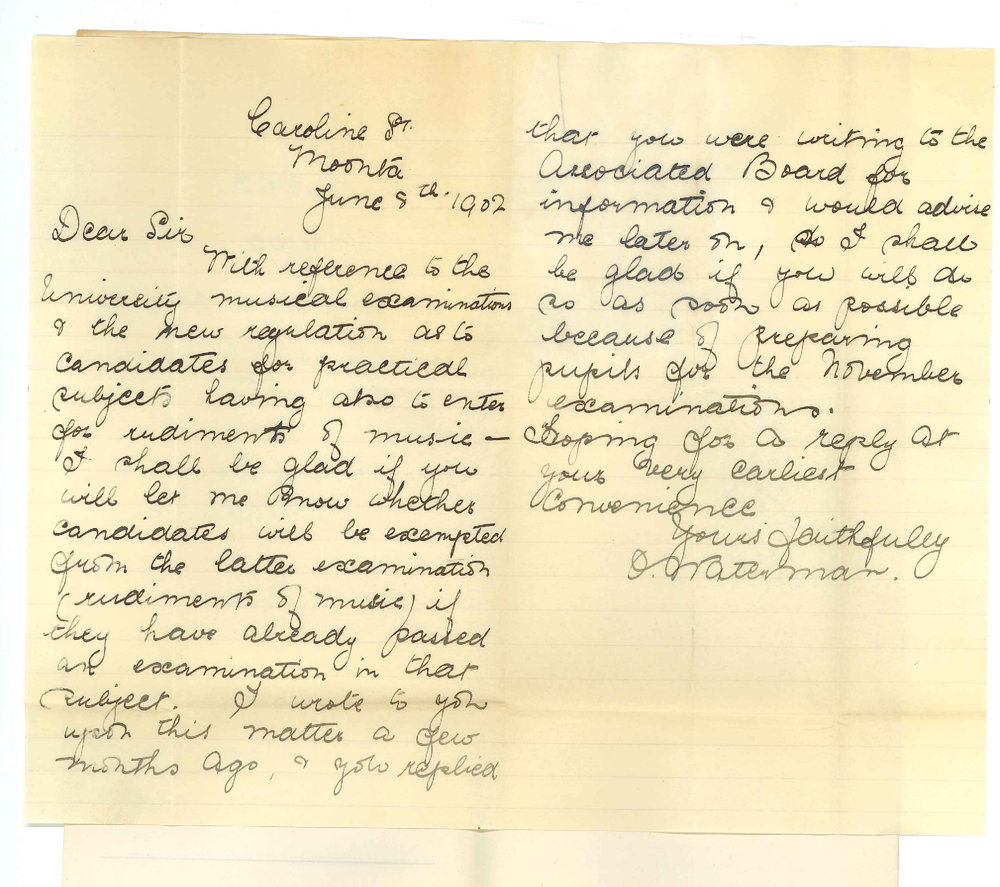 Caroline St.
Moonta
June 8th. 1902
Dear Sir
With reference to the
University musical examinations
& the new regulation as to
candidates for practical
subjects having also to enter
for rudiments of music –
I shall be glad if you
will let me know whether
candidates will be exempted
from the latter examination
(rudiments of music) if
they have already passed
an examination in that
subject. I wrote to you
upon this matter a few
months ago, & you replied
that you were writing to the
Associated Board for
information & would advise
me later on, so I shall
be glad if you will do
so as soon as possible
because of preparing
pupils for the November
examinations.
Hoping for a reply at
your very earliest
convenience
Yours faithfully
O. Waterman.